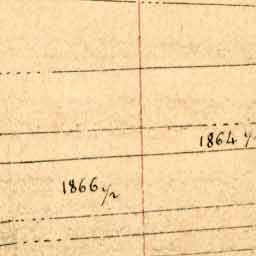 1864 1/
1866 1/2